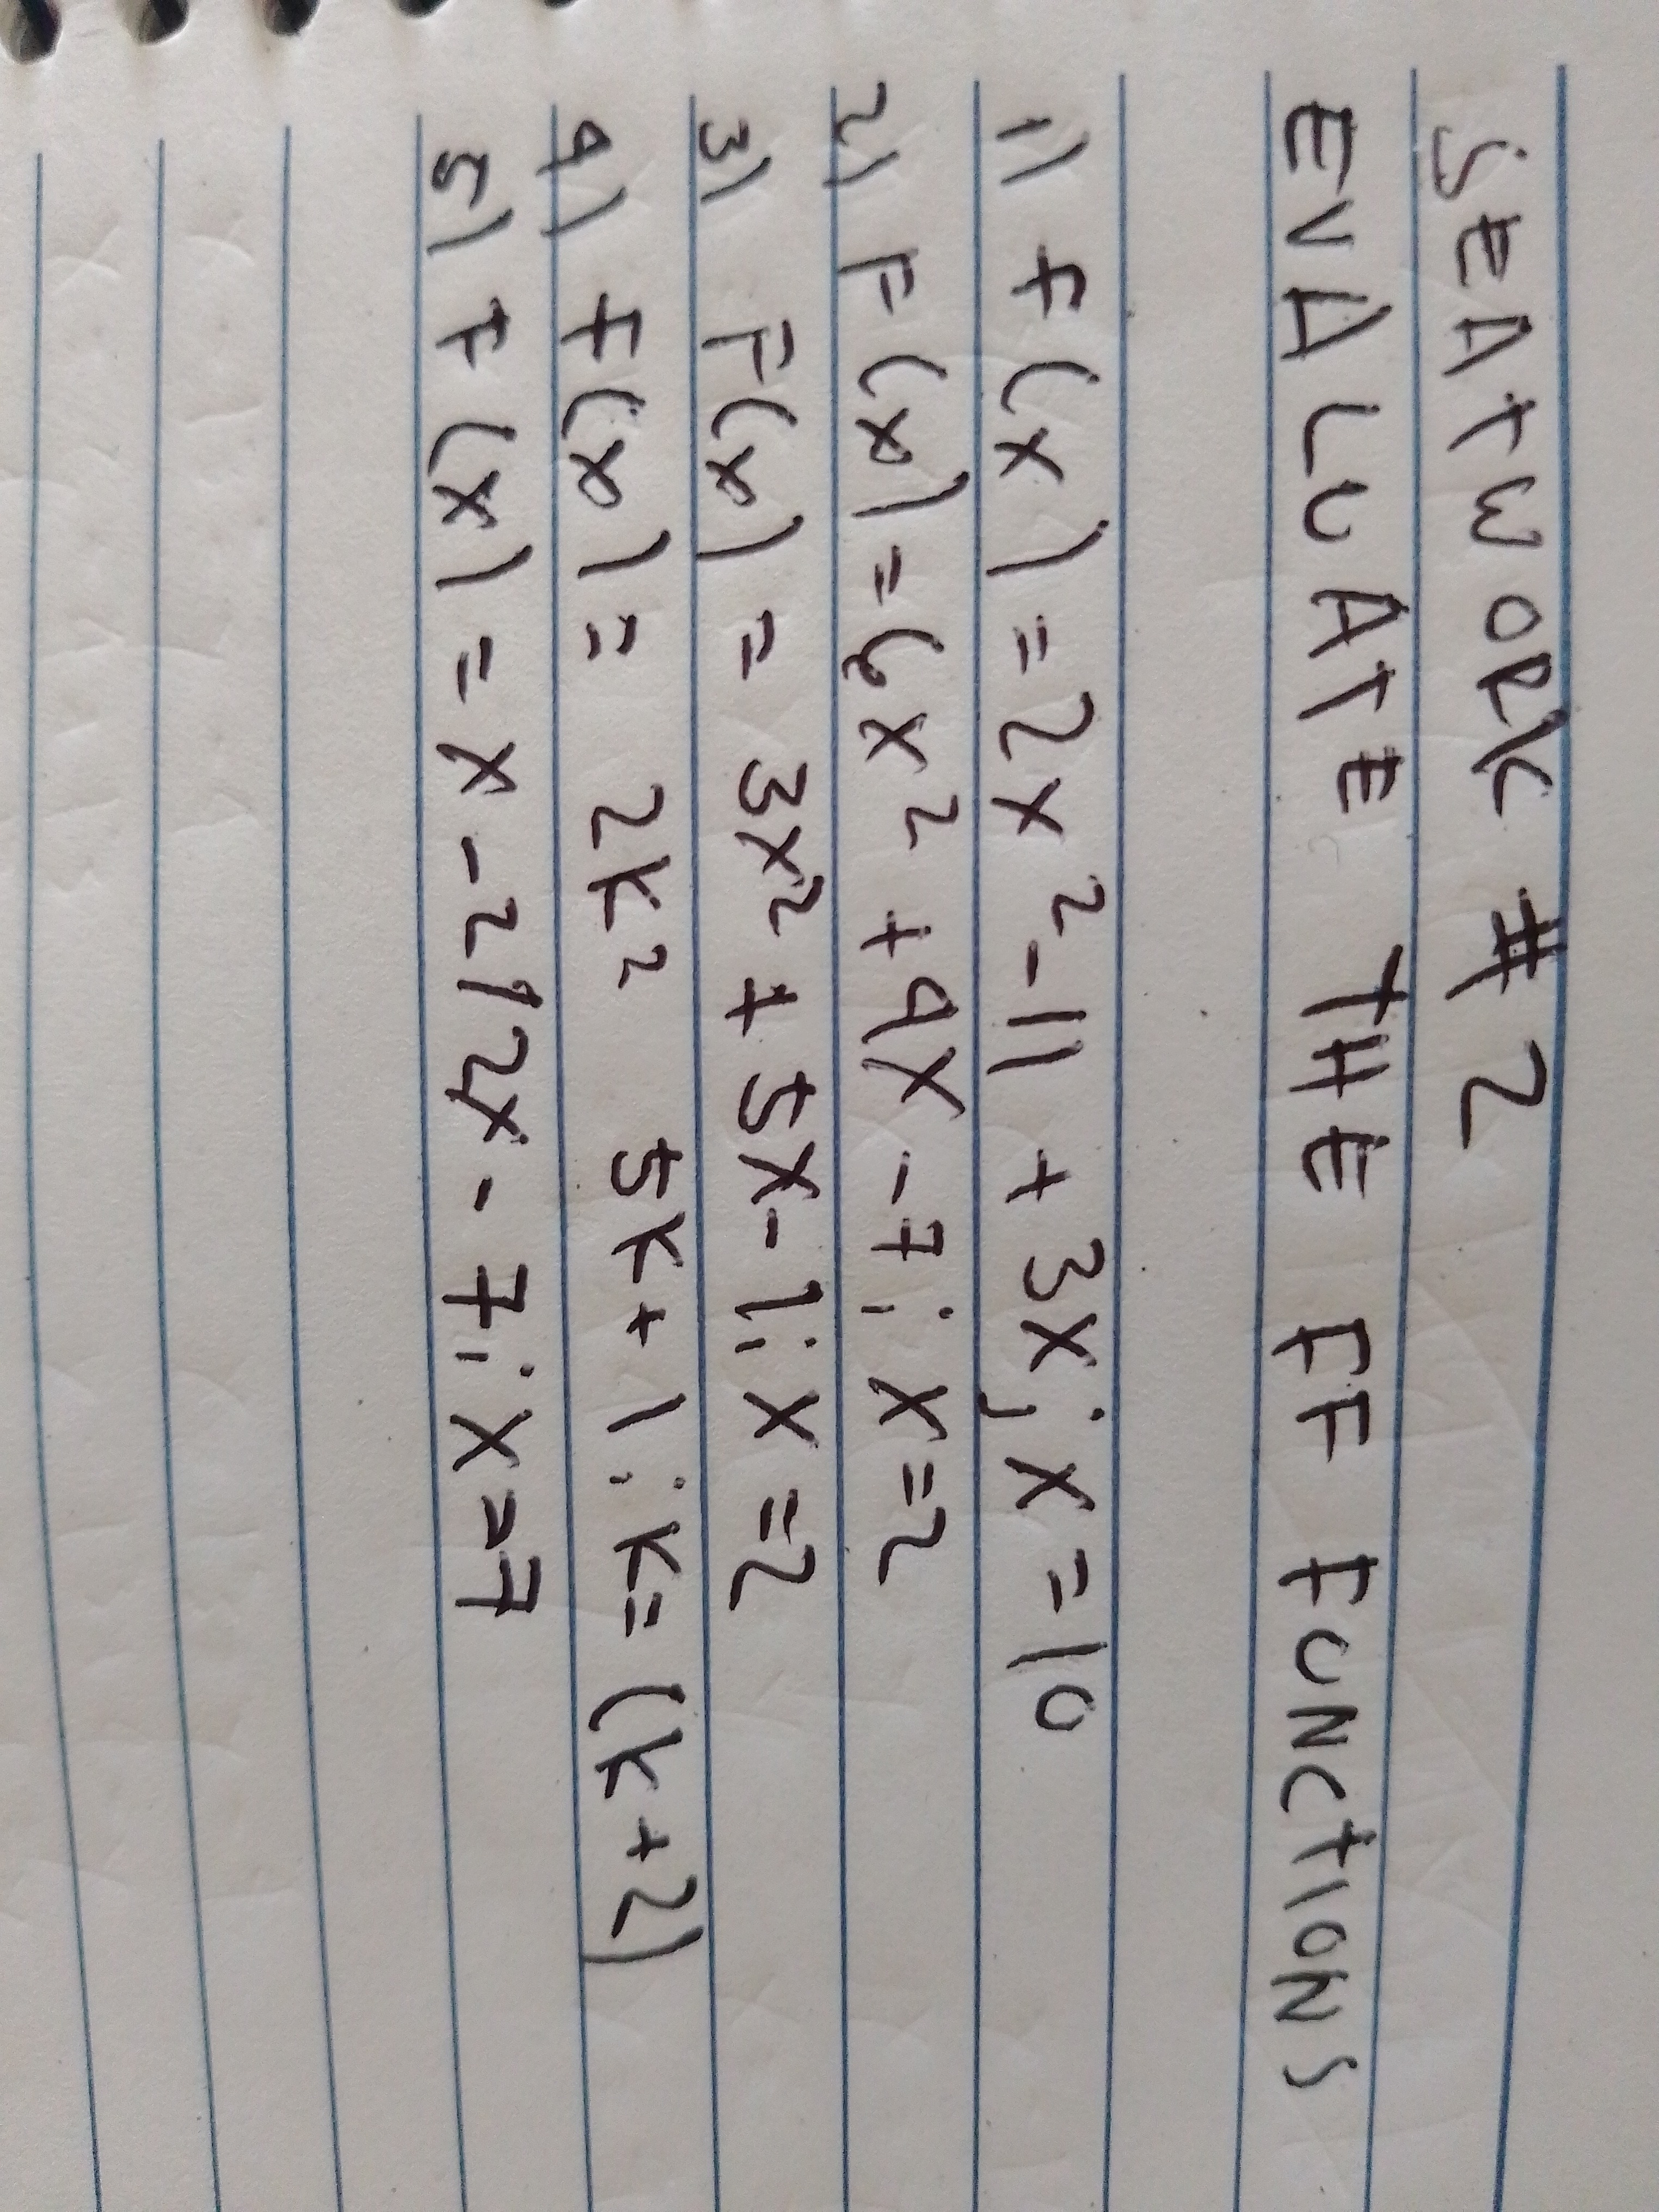 SEATWORK # 2
EVALUATE THE FF FUNCTIONS
1) f(x) = 2x²-11 + 3x; x = 10
2) F(x) = 6x² + 4x - 7; x = 2
3) F(x) = 3x² + 5x - 1; x = 2
4) f(x) = 2k² 5k + 1; k = (k + 2)
5) f(x) = x - 2/2x - 7; x = 7